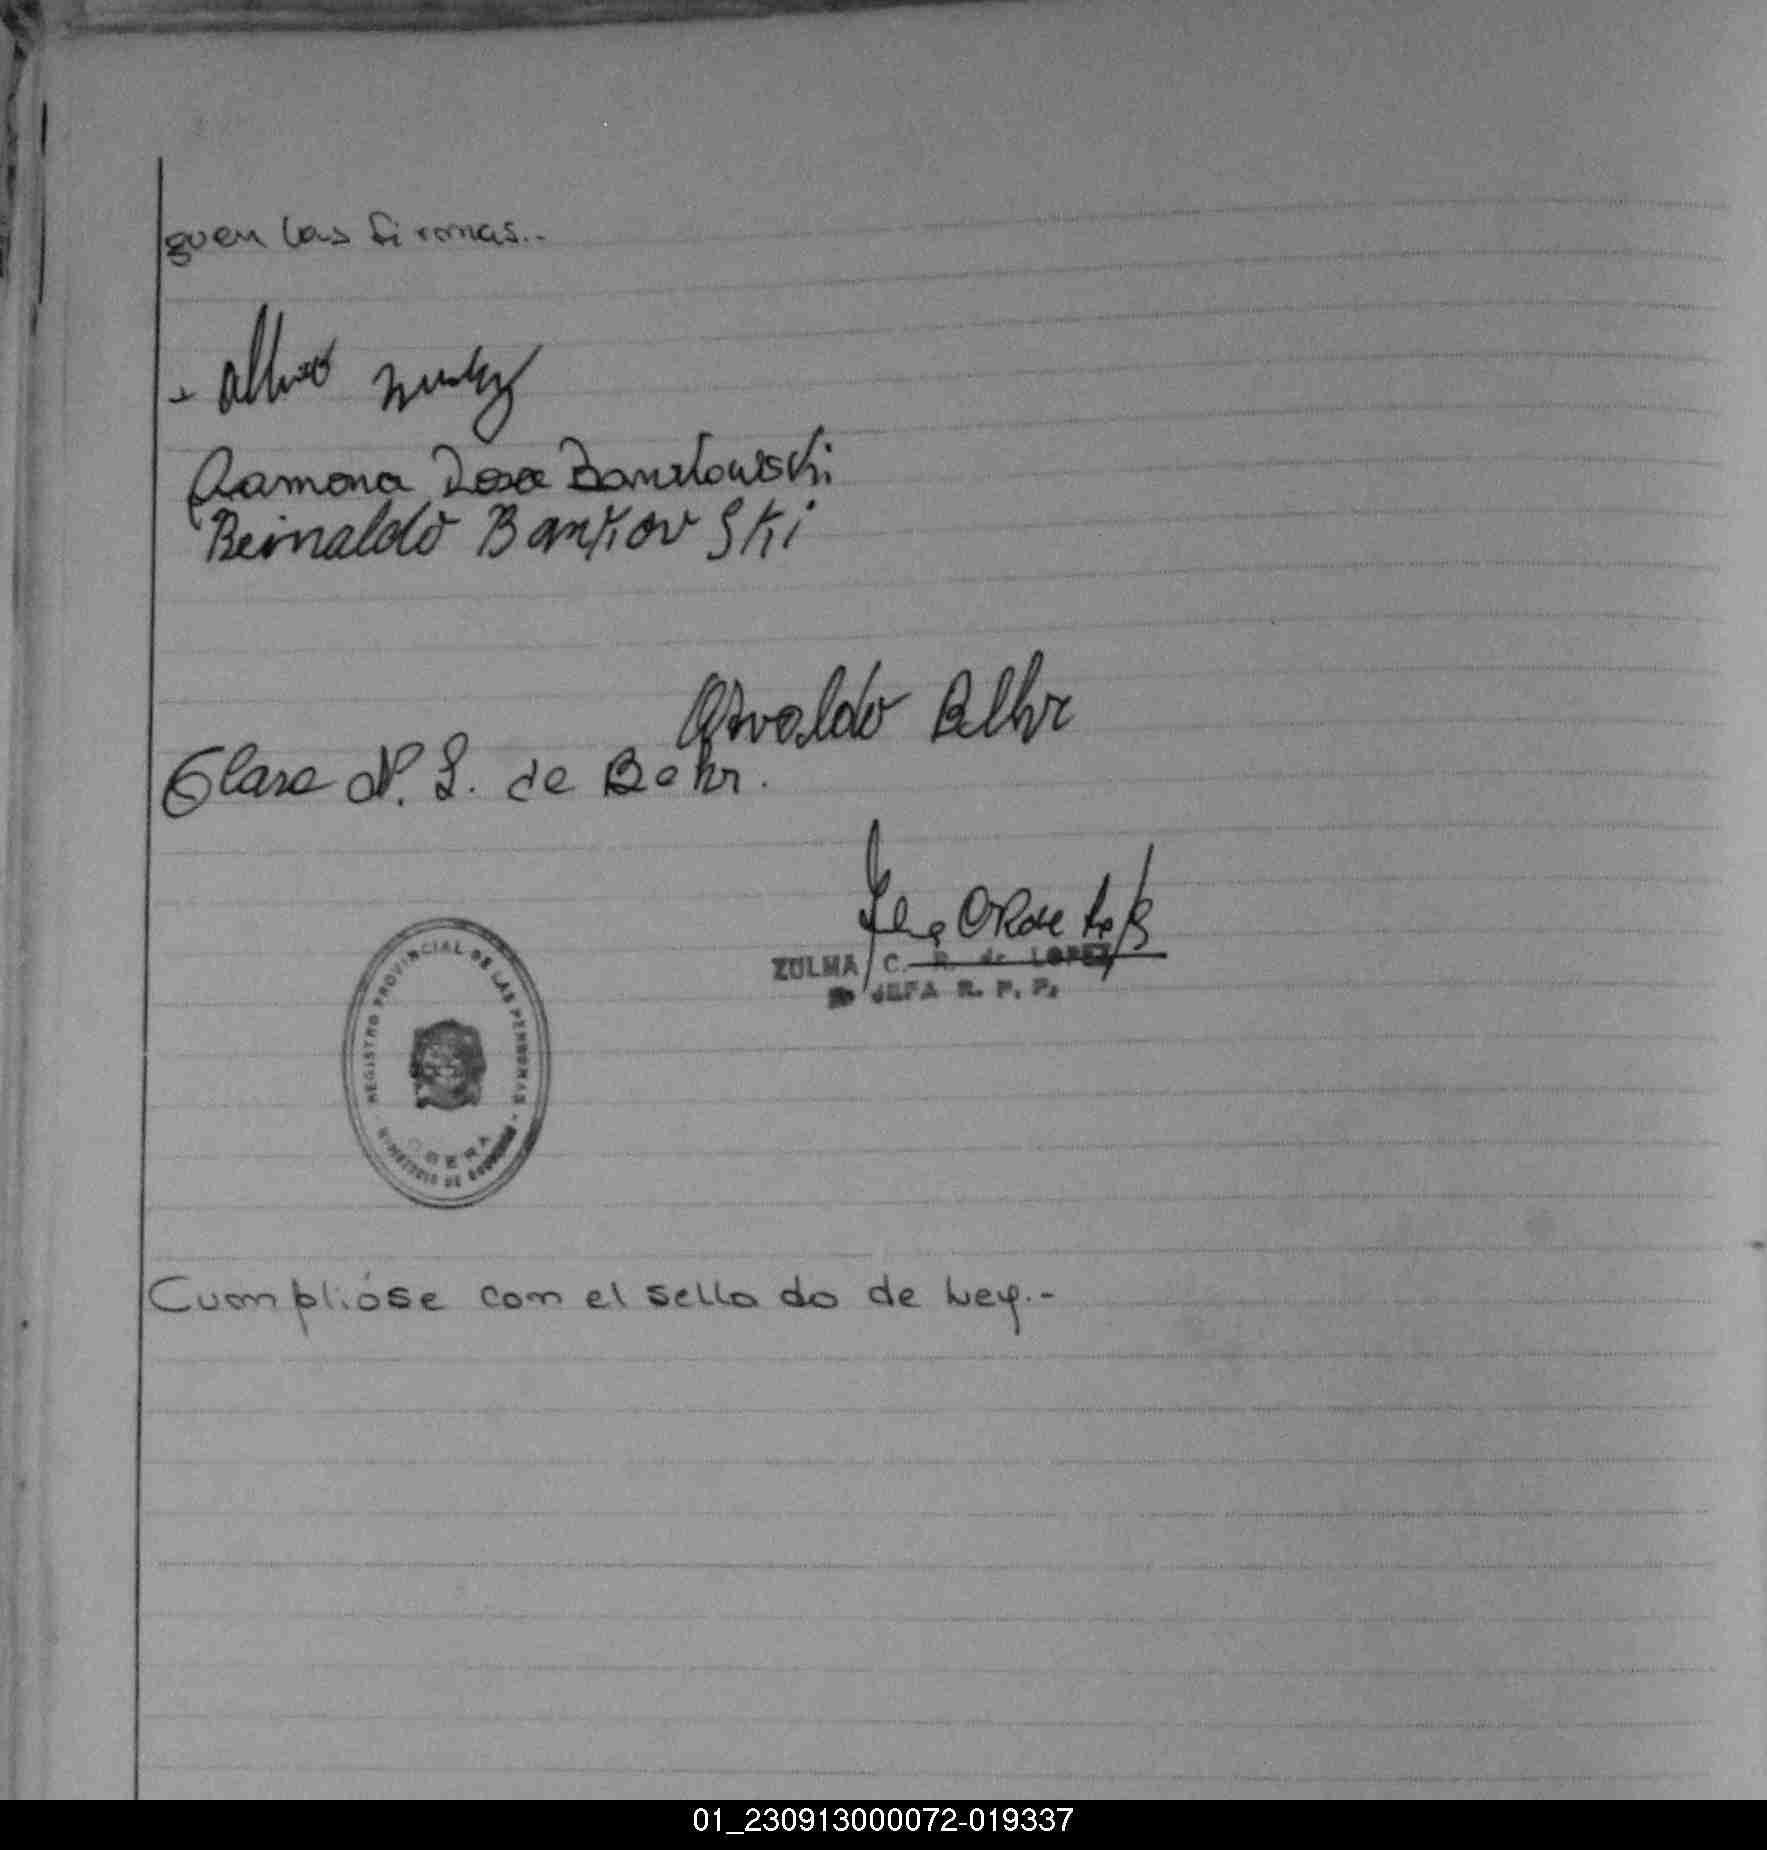 guen las firmas..
Ramona Rosa Bankowski
Reinaldo Bankov Ski
Osvaldo Behr
Clara N. L. de Behr.
ZULMA C. R. de LOPEZ
JEFA R. P. P.
REGISTRO PROVINCIAL DE LAS PERSONAS
OBERA
MINISTERIO DE GOBIERNO
Cumplióse con el sellado de Ley.-
01_230913000072-019337